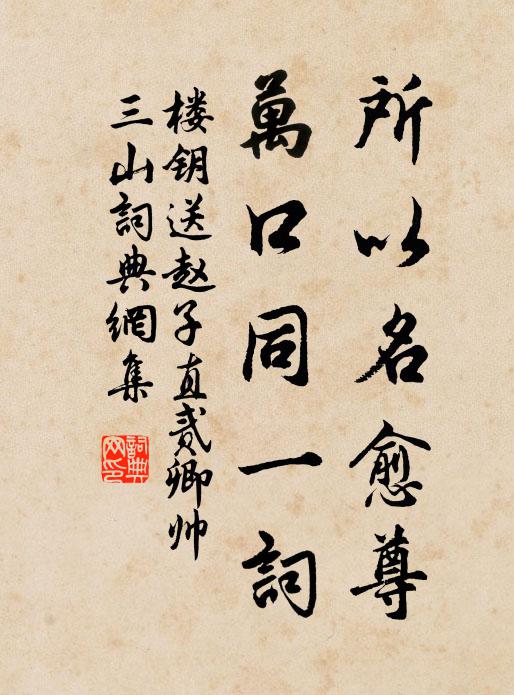 所以名愈尊
萬口同一詞
楼钥送赵子直贰卿帅
三山詞典網集
詞典
网印